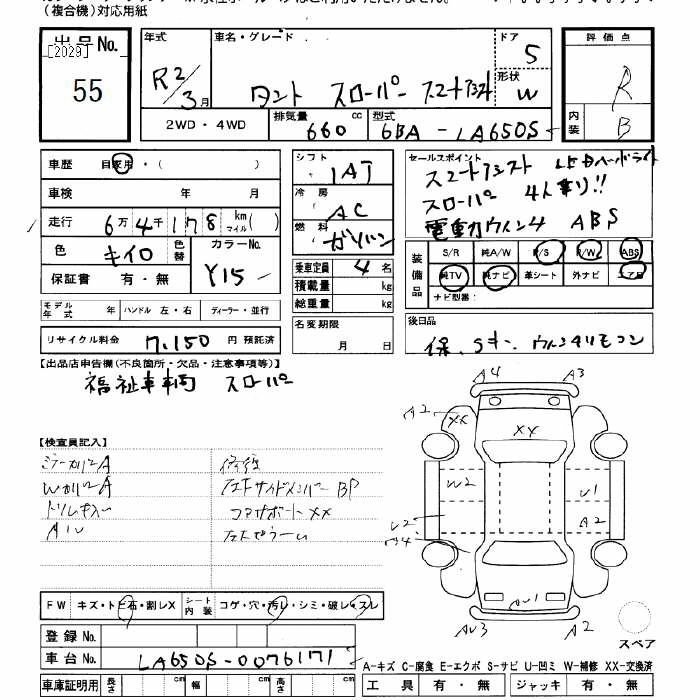 (複合機)対応用紙
出品No.
[2029]
55
年式
R2/3月
車名・グレード
タント スローパー スマートアシスト
ドア
5
形状
W
評価点
R
内装
B
2WD・4WD
排気量 660 cc
型式 6BA-LA650S
車歴 自家用・( )
車検 年 月
走行 6万4千178 km マイル( )
色 キイロ 色替
カラーNo. Y15
保証書 有・無
モデル年式 年 ハンドル 左・右 ディーラー・並行
リサイクル料金 7,150 円 預託済
シフト IAT
冷房 AC
燃料 ガソリン
乗車定員 4 名
積載量 kg
総重量 kg
名変期限 月 日
セールスポイント
スマートアシスト LEDヘッドライト
スローパー 4人乗り!!
電動ウィンチ ABS
装備品
S/R 純A/W P/S P/W ABS
純TV 純ナビ 革シート 外ナビ エアB
ナビ型番:
後日品
保、Sキー、ウィンチリモコン
【出品店申告欄(不良箇所・欠品・注意事項等)】
福祉車輌 スローパー
【検査員記入】
ミラーカバーA
Wカバー2A
トリムキズ
AU
修復
左Fサイドメンバー BP
コアサポート XX
A4 A3
A2 XX
XX
W2 U1
A2
U2
AU1
AU3 A2
スペア
FW キズ・トビ石・割レX
シート内装 コゲ・穴・汚レ・シミ・破レ・スレ
登録No.
車台No. LA650S-0076171
車庫証明用 長さ cm 幅 cm 高さ cm
A-キズ C-腐食 E-エクボ S-サビ U-凹ミ W-補修 XX-交換済
工具 有・無 ジャッキ 有・無